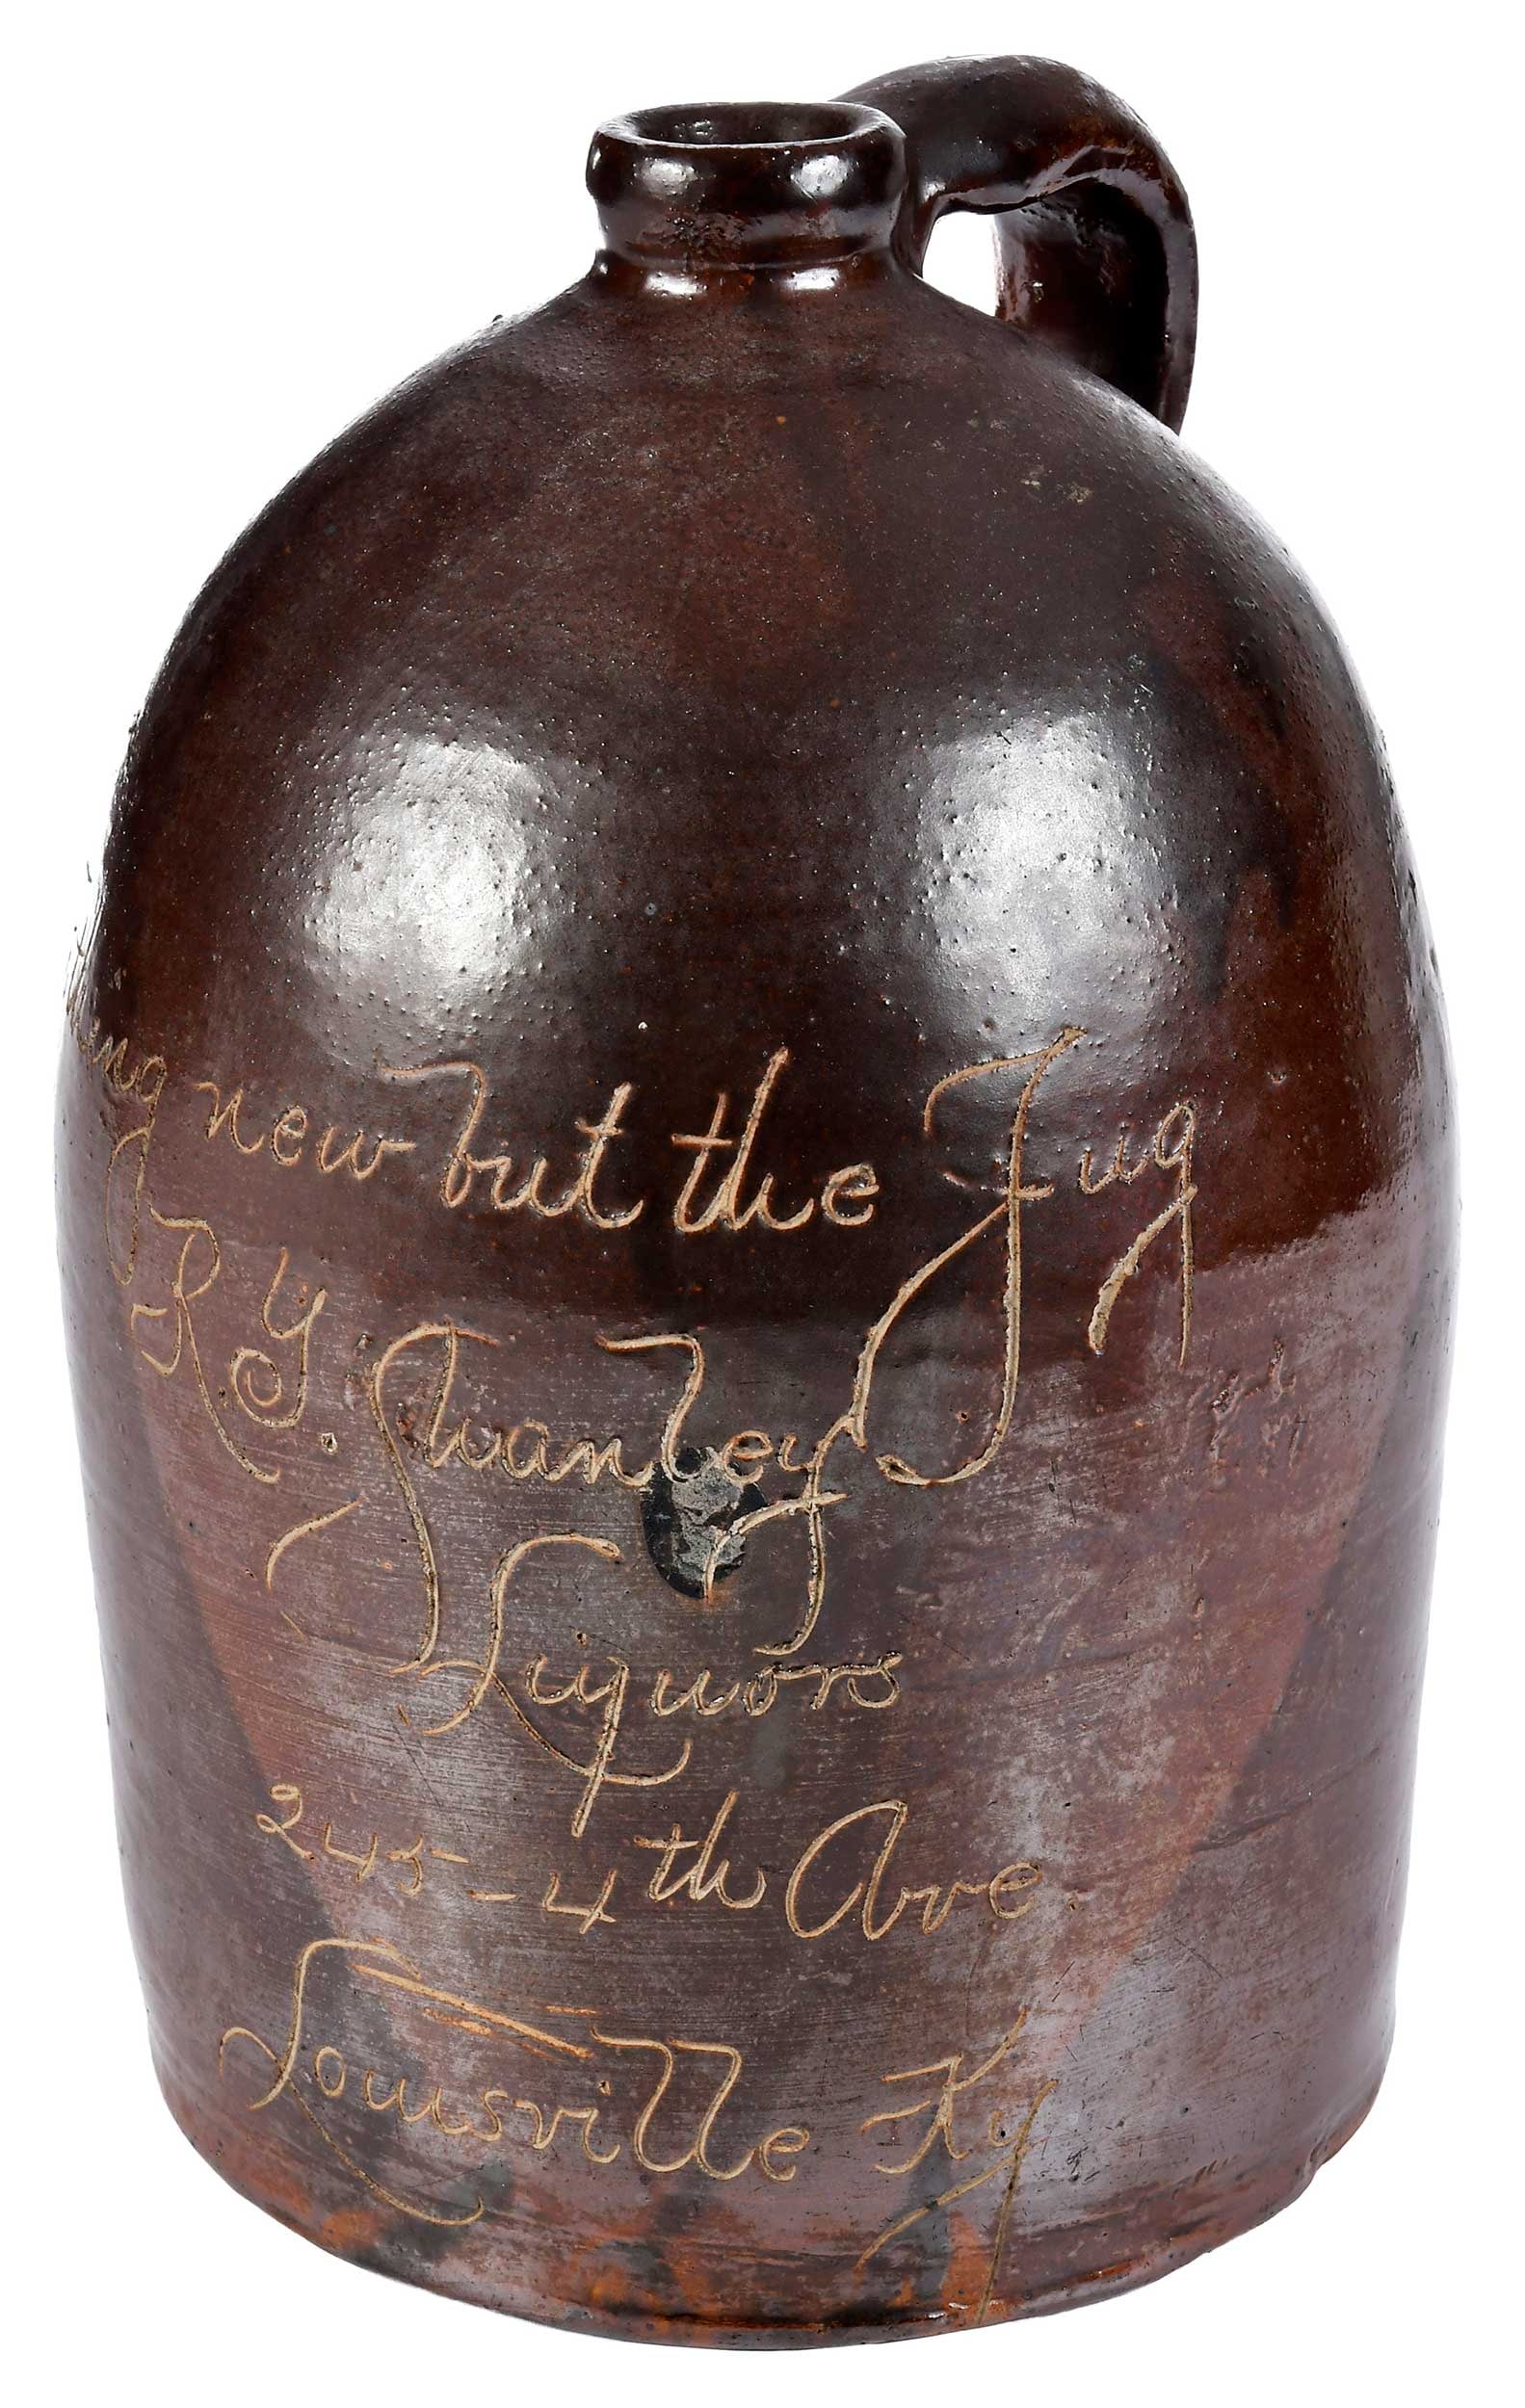 ing new but the Jug
R G. Swanley
Liquors
245 - 4th Ave
Louisville Ky